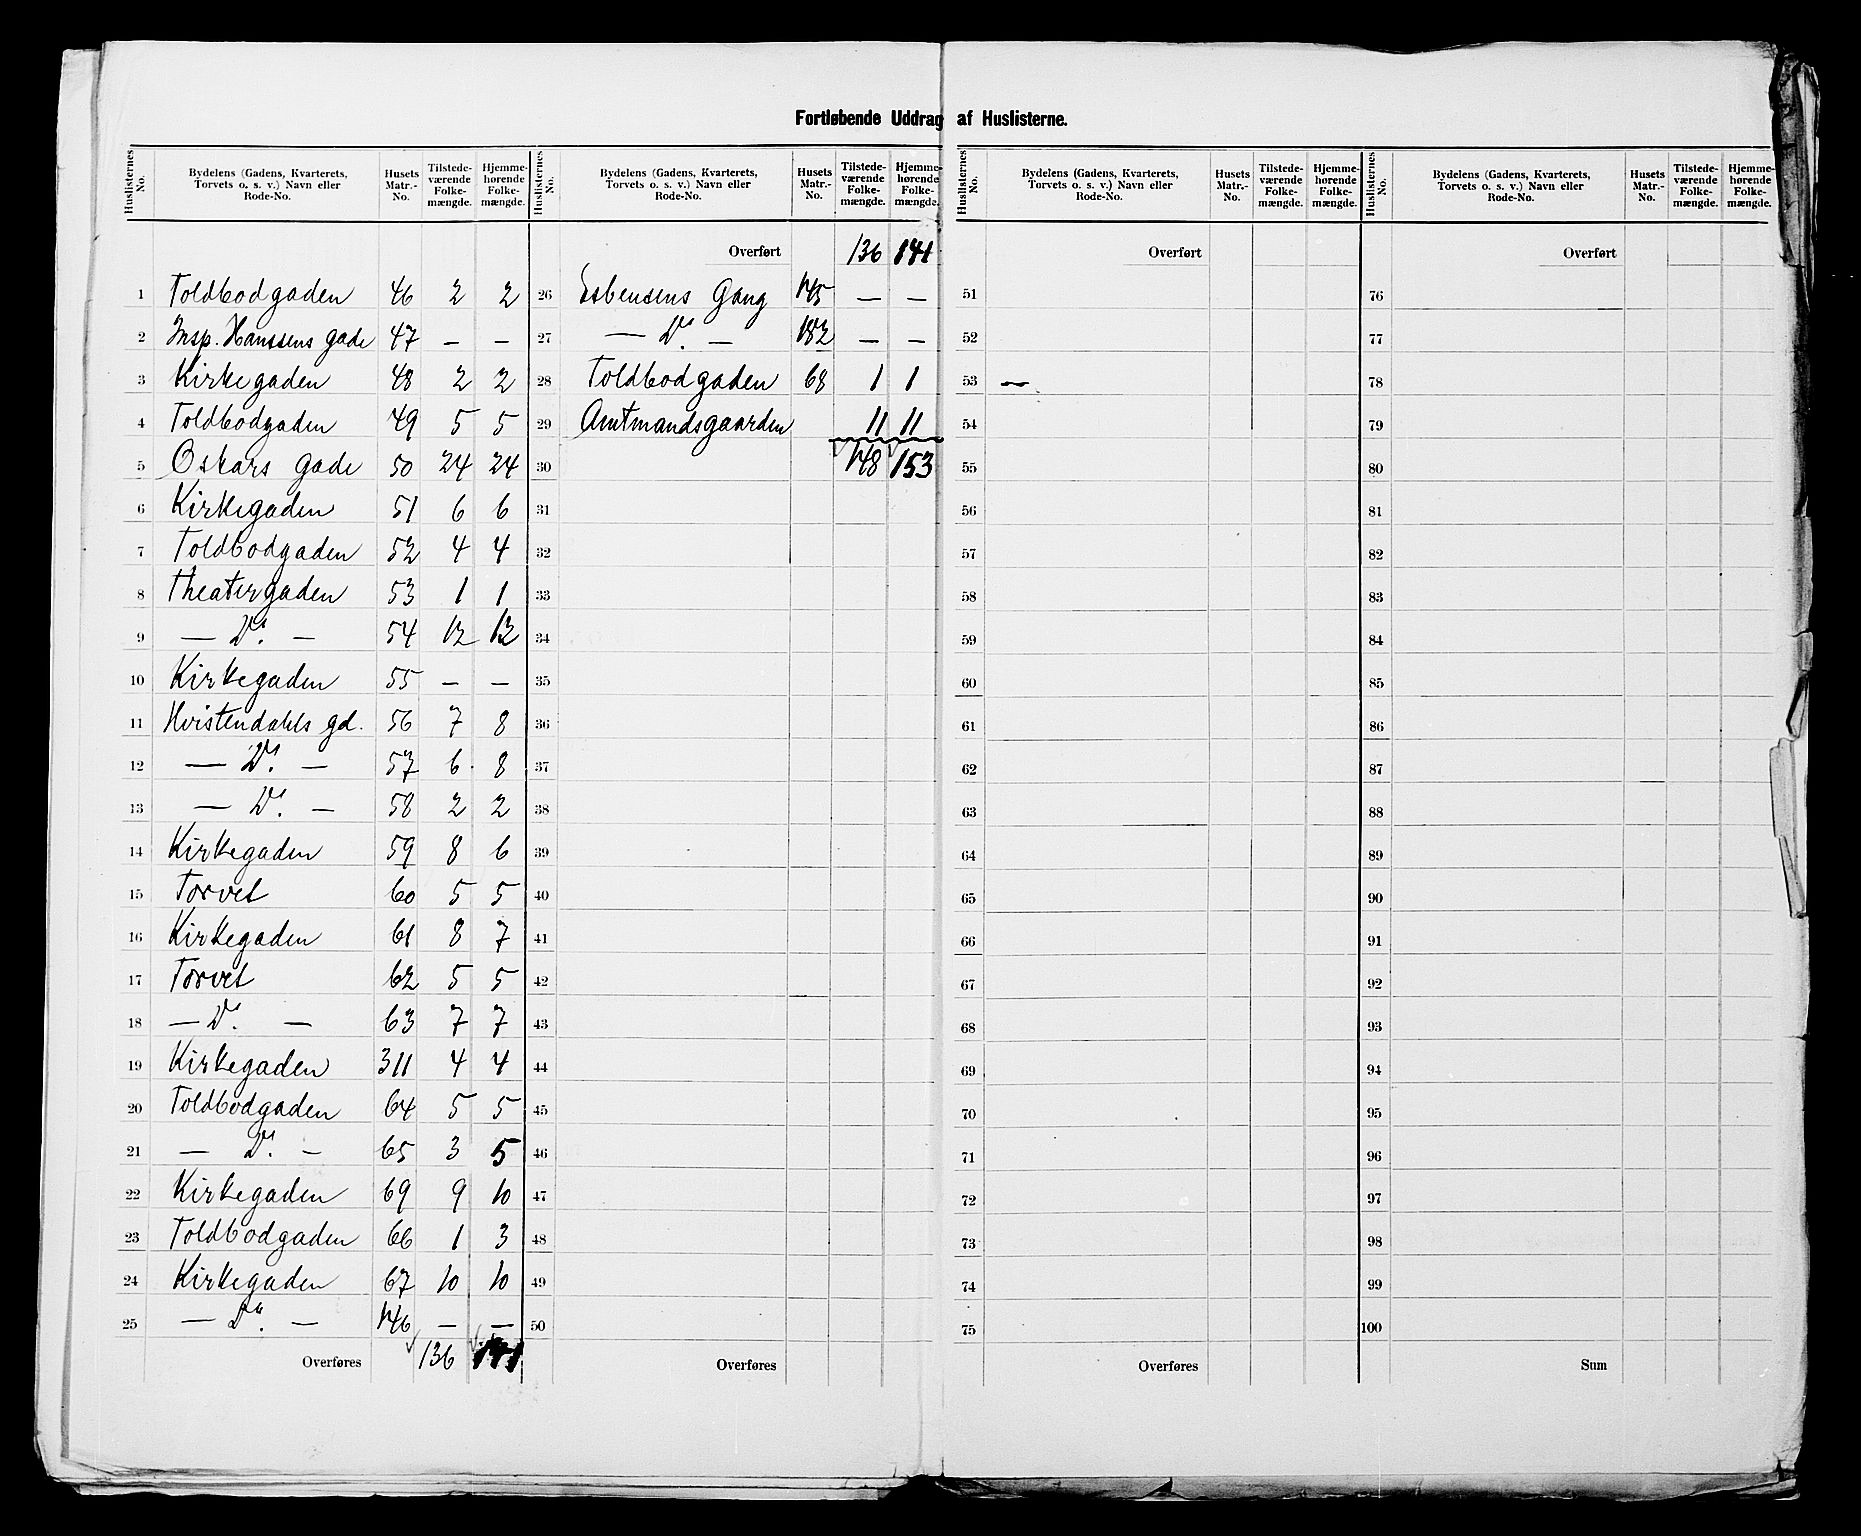 Fortløbende Uddrag af Huslisterne.
Huslisternes No. | Bydelens (Gadens, Kvarterets, Torvets o. s. v.) Navn eller Rode-No. | Husets Matr.-No. | Tilstedeværende Folkemængde. | Hjemmehørende Folkemængde. | Huslisternes No. | Bydelens (Gadens, Kvarterets, Torvets o. s. v.) Navn eller Rode-No. | Husets Matr.-No. | Tilstedeværende Folkemængde. | Hjemmehørende Folkemængde. | Huslisternes No. | Bydelens (Gadens, Kvarterets, Torvets o. s. v.) Navn eller Rode-No. | Husets Matr.-No. | Tilstedeværende Folkemængde. | Hjemmehørende Folkemængde. | Huslisternes No. | Bydelens (Gadens, Kvarterets, Torvets o. s. v.) Navn eller Rode-No. | Husets Matr.-No. | Tilstedeværende Folkemængde. | Hjemmehørende Folkemængde.
1 Toldbodgaden 46 2 2
2 Insp. Hanssens gade 47 — —
3 Kirkegaden 48 2 2
4 Toldbodgaden 49 5 5
5 Oskars gade 50 24 24
6 Kirkegaden 51 6 6
7 Toldbodgaden 52 4 4
8 Theatergaden 53 1 1
9 — Do. — 54 12 12
10 Kirkegaden 55 — —
11 Hvistendahls gd. 56 7 8
12 — Do. — 57 6 8
13 — Do. — 58 2 2
14 Kirkegaden 59 8 6
15 Torvet 60 5 5
16 Kirkegaden 61 8 7
17 Torvet 62 5 5
18 — Do. — 63 7 7
19 Kirkegaden 311 4 4
20 Toldbodgaden 64 5 5
21 — Do. — 65 3 5
22 Kirkegaden 69 9 10
23 Toldbodgaden 66 1 3
24 Kirkegaden 67 10 10
25 — Do. — 146 — —
Overføres 136 141
Overført 136 141
26 Esbensens Gang 145 — —
27 — Do. — 182 — —
28 Toldbodgaden 68 1 1
29 Amtmandsgaarden 11 11
30 148 153
31
32
33
34
35
36
37
38
39
40
41
42
43
44
45
46
47
48
49
50
Overføres
Overført
51
52
53 —
54
55
56
57
58
59
60
61
62
63
64
65
66
67
68
69
70
71
72
73
74
75
Overføres
Overført
76
77
78
79
80
81
82
83
84
85
86
87
88
89
90
91
92
93
94
95
96
97
98
99
100
Sum